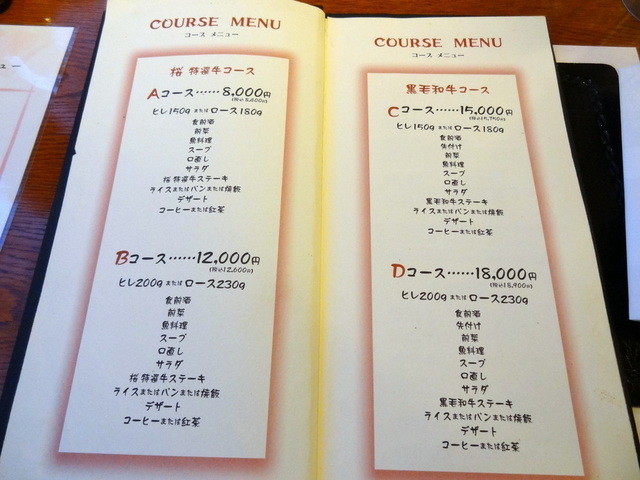 COURSE MENU
コース メニュー
桜 特選牛コース
Aコース……8,000円
ヒレ150g または ロース180g
食前酒
前菜
魚料理
スープ
口直し
サラダ
桜 特選牛ステーキ
ライスまたはパンまたは焼飯
デザート
コーヒーまたは紅茶
Bコース……12,000円
(税込12,600円)
ヒレ200g または ロース230g
食前酒
前菜
魚料理
スープ
口直し
サラダ
桜 特選牛ステーキ
ライスまたはパンまたは焼飯
デザート
コーヒーまたは紅茶
COURSE MENU
コース メニュー
黒毛和牛コース
Cコース……15,000円
(税込15,750円)
ヒレ150g または ロース180g
食前酒
先付け
前菜
魚料理
スープ
口直し
サラダ
黒毛和牛ステーキ
ライスまたはパンまたは焼飯
デザート
コーヒーまたは紅茶
Dコース……18,000円
(税込18,900円)
ヒレ200g または ロース230g
食前酒
先付け
前菜
魚料理
スープ
口直し
サラダ
黒毛和牛ステーキ
ライスまたはパンまたは焼飯
デザート
コーヒーまたは紅茶